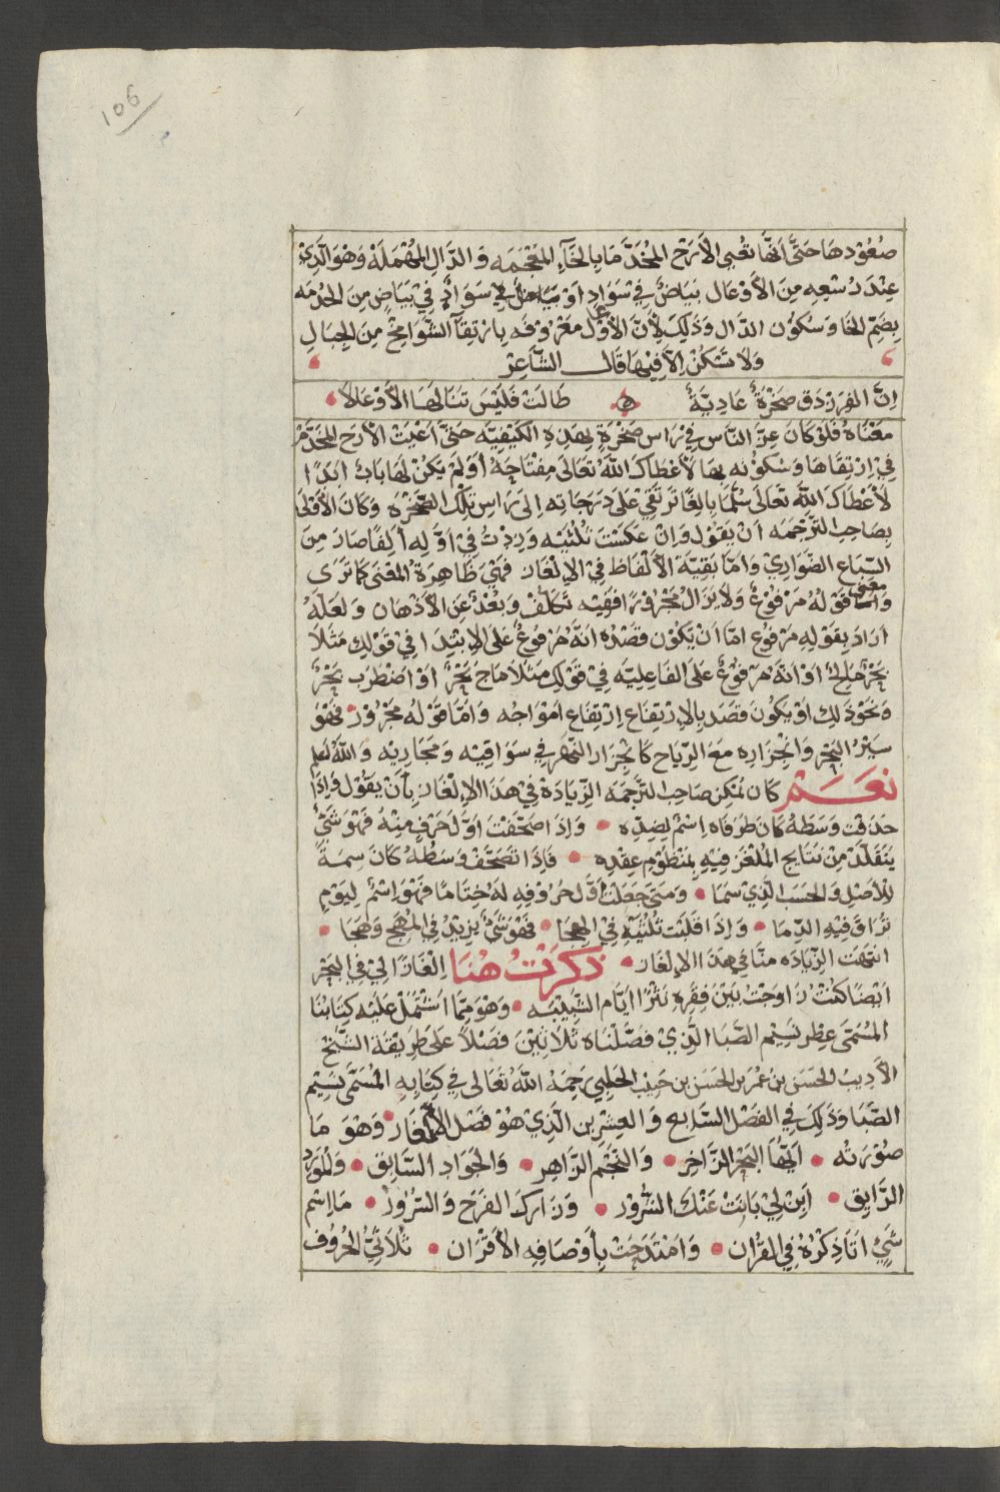 106
صُعُودهَا حَتَّى اَنَّهَا تُعْيِى الأَرَحَّ المُخَدَّمَا بِالخَآءِ المُعْجَمَه وَ الدَّالِ المُهْمَلَة وَهْوَ الَّذِي
عِنْدَ رُسْغِهِ مِنَ الأَوْعَال بَيَاضٌ فِي سَوَادٍ اَوْ بَيَاضٌ فِي سَوَادٍ فِي بَيَاضٍ مِنَ الخُدْمَه
بِضَمِّ الخَا وَسُكُون الدَّال وَذَلِكَ لِأَنَّ الأَوْعُل مَعْرُوفَه بِارْتِقَآ الشَّوَامِخْ مِنَ الجِبَالِ
وَلاَ تَسْكُنْ اِلاَّ فِيْهَا قَالَ الشَّاعِرْ
اِنَّ الفَرَزْدَق صَخْرَةٌ عَادِيَّةٌ ه طَالَتْ فَلَيْسَ تَنَالُهَا الأَوْعَالاَ
مَعْنَاهُ فَلَوْ كَانَ عِزُّ النَّاس فِي رَاسِ صَخْرَةٍ لِهَذِهِ الكَيْفِيَّه حَتَّى اَعْيَتْ الأَرَحّ المُخَدَّمْ
فِي اِرْتِقَاهَا وَسُكُوْنه بِهَا لأَعْطَاكَ اللهُ تَعَالَى مِفْتَاحَهُ أَوْ لَمْ يَكُنْ لَهَا بَابٌ اَبَدًا
لأَعْطَاكَ اللهَ تَعَالَى سُلَّمًا بَالِغًا تَرتَقِي عَلَى دَرَجَاتِه اِلَى رَاسِ تِلْكَ الصَّخْرَه وَكَانَ الأَوْلَى
بِصَاحِب التَّرْجَمَه اَنْ يَقُوْل وَاِنْ عَكَسْتَ ثُلْثَيْه وَزِدْتُ فِي اَوَّلِه اَلِفًا صَارَ مِنَ
السِّبَاعِ الضَّوَارِيْ وَاَمَّا بَقِيَّةَ الأَلْفَاظ فِي الاِلْغَاز فَهْيَ ظَاهِرَةُ المَعْنَى كَمَا تَرَى
وَاَمَّا معنى قَوْلهُ مَرْفُوْعٌ وَلاَ يَزَالُ مَجْرُورًا فَفِيْه تَكَلُّفٌ وَبُعْدٌ عَنِ الأَذْهَان وَلَعَلَّهُ
اَرَادَ بِقَوْلِهِ مَرْفُوْع اِمَّا اَنْ يَكُوْن قَصْدُهُ اَنَّهُ مَرْفُوعٌ عَلَى الاِبْتِدَا فِي قَوْلِكَ مَثَلاً
بَحْرٌ مَالِحٌ اَوْ اَنَّهُ مَرْفُوْعٌ عَلَى الفَاعِلِيَّه فِي قَوْلِكَ مَثَلاً مَاجَ بَحْرٌ اَوْ اضْطَرَبَ بَحْرٌ
وَنَحْوَ ذَلِكَ اَوْ يَكُونَ قَصَدَ بِالاِرْتِفَاع اِرْتِفَاعِ اَمْوَاجُه وَاَمَّا قَوْلُهُ مَجْرُوْرٌ فَهْوَ
سَيْرُ البَحْرِ وَانْجِرَارِه مَعَ الرِّيَاح كَانْجِرَار النَّهْر فِي سَوَاقِيْه وَمَجَارِيْه وَاللهُ أَعلم
نَعَمْ كَان يُمْكِن صَاحِب التَّرْجَمَه الزِّيَادَةْ فِيْ هَذَا الاِلْغَاز بِاَنْ يَقُوْل وَاِذَا
حَذَفْتَ وَسَطهُ كَانَ طَرَفَاه اِسْمٌ لِضِدِّه وَاِذَا صَحَّفْتَ اَوَّلَ حَرْفٍ مِنْهُ فَهْوَ شَيْءٌ
يَتَقَلَّدْ مِنْ نَتَايج المُلْغَز فِيْهِ بِمَنْظُوْمِ عِقْدِه فَاِذَا تَصَحَّفَ وَسَطُهُ كَانَ سِمَةً
لِلأَصْلِ وَالحَسَبِ الَّذِي سَمَا وَمَتَى جَعَلْتَ اَوَّلَ حُرُوْفِهِ لَهُ خِتَامًا فَهْوَ اِسْمٌ لِيَوْمٍ
تُرَاق فِيْهِ الدِّمَا وَاِذَا قَلَبْتَ ثُلْثَيْهِ فِي الهِجَا فَهْوَ شَيْءٌ يَزِيْدُ فِي المُهَجِ وَهَجَا
انْتَهَت الزِّيَادَه مِنَّا فِي هَذَا الاِلْغَاز ذَكَرْتُ هُنَا اِلْغَازًا لِيْ فِي البَحْرِ
اَيْضًا كُنْتُ زَاوَجْتُ بَيْنَ فِقَرِهِ نَثْرًا اَيَّام الشَّبِيْبَه وَهْوَ مِمَّا اشْتَمَلْ عَلَيْهِ كِتَابُنَا
المُسَمَّى عِطْر نَسِيْم الصَّبَا الَّذِيْ فَصَّلْنَاهُ ثَلاَثِيْنَ فَصْلاً عَلَى طَرِيْقَة الشَّيْخ
الأَدِيبْ الحَسَن بن عُمَر بن الحَسَن بن حَبِيْب الحَلَبِي رَحِمَهُ اللهُ تَعَالَى فِي كِتَابِهِ المُسَمَّى نَسِيْم
الصَّبَا وَذَلِكَ فِي الفَصْل السَّابِع وَالعِشْرِيْن الَّذِيْ هُوْ فَصْل الاِلْغَاز وَهْوَ مَا
صُوْرَتُه اَيُّهَا البَحْرُ الزَّاخِر وَالنَّجْم الزَّاهِر وَالجَوَاد السَّابِق وَالمَوْرِد
الرَّايِق اَبِنْ لِيْ بَانَتْ عَنْكَ الشُّرُوْر وَزَارَكَ الفَرَح وَالسُّرُوْر مَا اِسْم
شَيْءٍ اَتَا ذِكْرُهُ فِي القُرْان وَامْتَدَحَتْ بِأَوْصَافِهِ الأَقْرَان ثُلاَثِيُّ الحُرُوْف